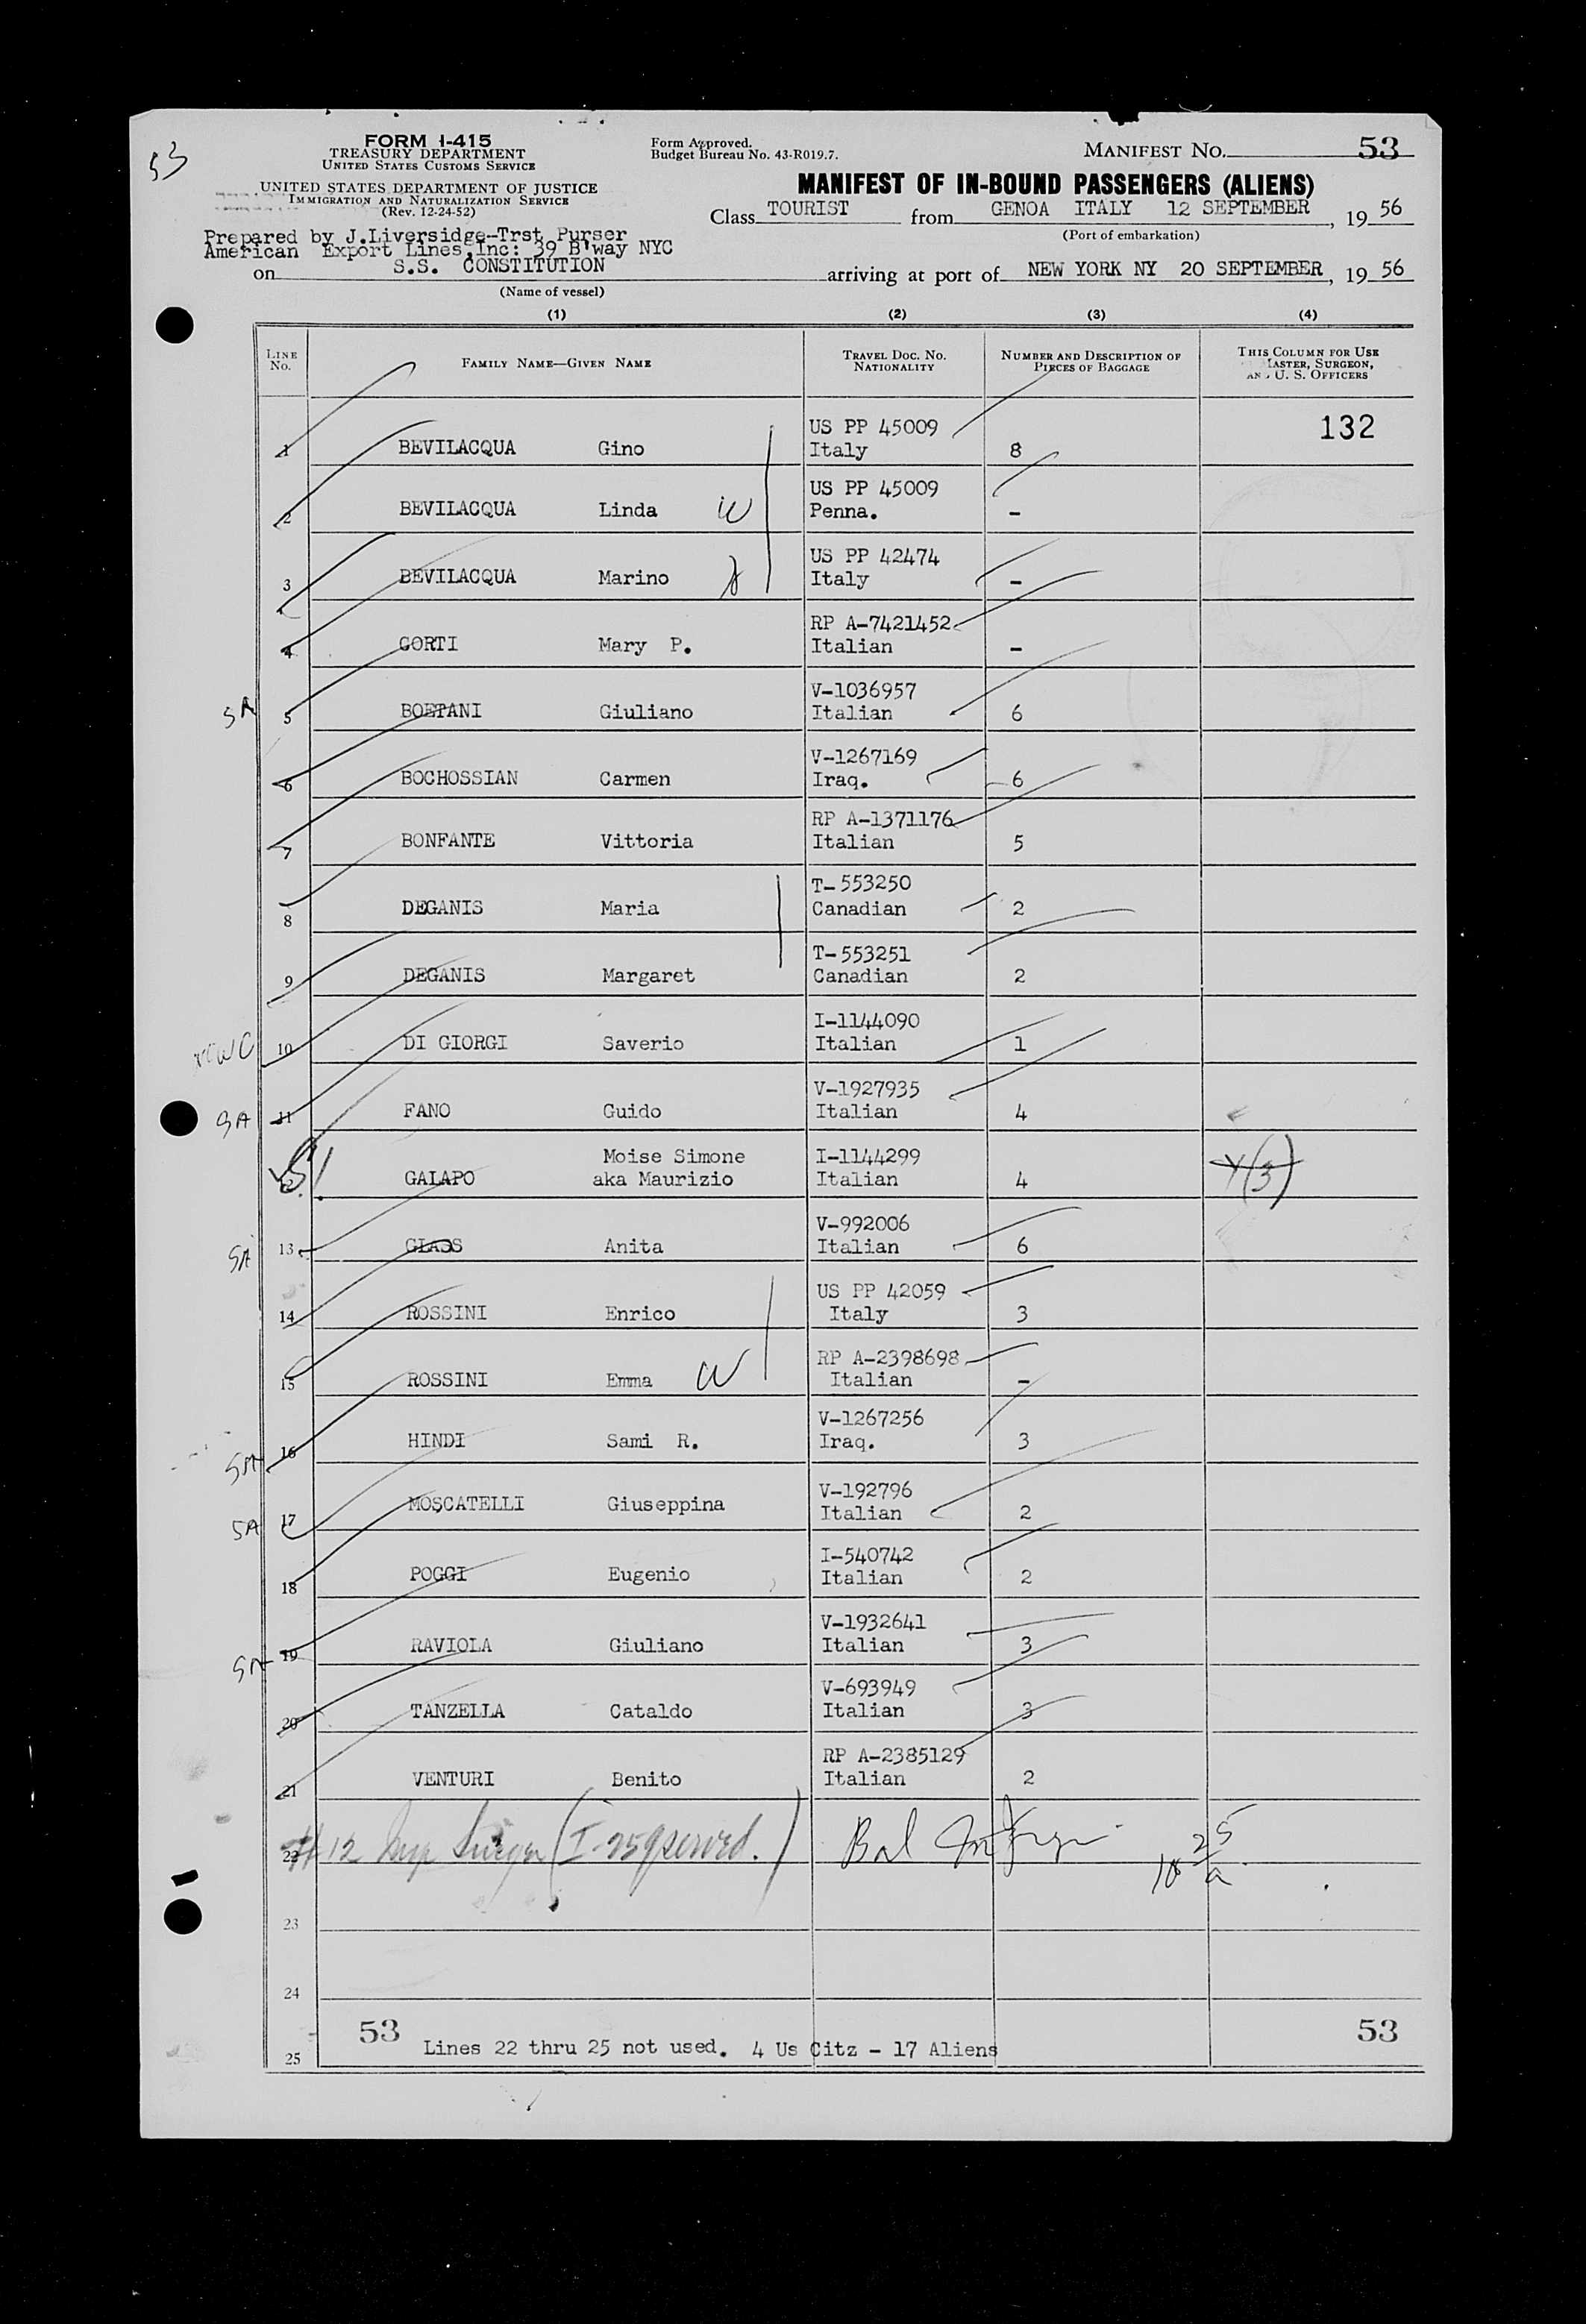 53
FORM I-415
TREASURY DEPARTMENT
UNITED STATES CUSTOMS SERVICE
UNITED STATES DEPARTMENT OF JUSTICE
IMMIGRATION AND NATURALIZATION SERVICE
(Rev. 12-24-52)
Form Approved.
Budget Bureau No. 43-R019.7.
MANIFEST NO. 53
MANIFEST OF IN-BOUND PASSENGERS (ALIENS)
Class TOURIST from GENOA ITALY 12 SEPTEMBER, 19 56
(Port of embarkation)
Prepared by J.Liversidge-Trst Purser
American Export Lines,Inc: 39 B'way NYC
on S.S. CONSTITUTION arriving at port of NEW YORK NY 20 SEPTEMBER, 19 56
(Name of vessel)
(1) (2) (3) (4)
LINE NO. FAMILY NAME—GIVEN NAME TRAVEL DOC. NO. NATIONALITY NUMBER AND DESCRIPTION OF PIECES OF BAGGAGE THIS COLUMN FOR USE MASTER, SURGEON, AND U. S. OFFICERS
132
1 BEVILACQUA Gino US PP 45009 Italy 8
2 BEVILACQUA Linda W US PP 45009 Penna. -
3 BEVILACQUA Marino US PP 42474 Italy -
4 CORTI Mary P. RP A-7421452 Italian -
SA 5 BOETANI Giuliano V-1036957 Italian 6
6 BOCHOSSIAN Carmen V-1267169 Iraq. 6
7 BONFANTE Vittoria RP A-1371176 Italian 5
8 DEGANIS Maria T-553250 Canadian 2
9 DEGANIS Margaret T-553251 Canadian 2
10 DI GIORGI Saverio I-1144090 Italian 1
SA 11 FANO Guido V-1927935 Italian 4
GALAPO Moise Simone aka Maurizio I-1144299 Italian 4 Y(3)
SA 13 GLASS Anita V-992006 Italian 6
14 ROSSINI Enrico US PP 42059 Italy 3
15 ROSSINI Emma W RP A-2398698 Italian -
SA 16 HINDI Sami R. V-1267256 Iraq. 3
SA 17 MOSCATELLI Giuseppina V-192796 Italian 2
18 POGGI Eugenio I-540742 Italian 2
SA 19 RAVIOLA Giuliano V-1932641 Italian 3
20 TANZELLA Cataldo V-693949 Italian 3
21 VENTURI Benito RP A-2385129 Italian 2
22 #12 (I-259 served.) Bal
23
24
25 53 Lines 22 thru 25 not used. 4 Us Citz - 17 Aliens 53